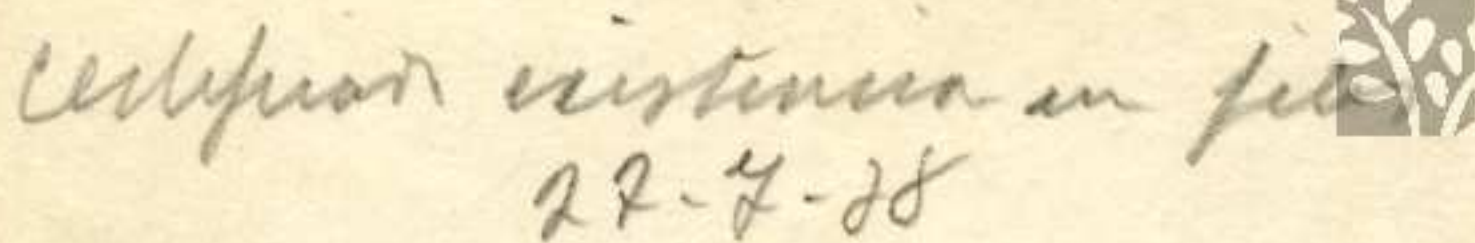 certificado existencia en filas
27-7-38